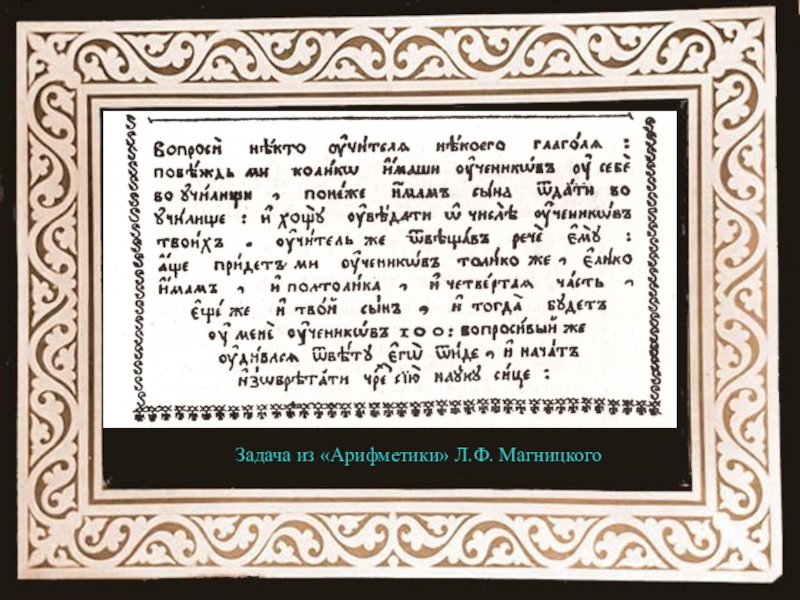 Вопроси̂ нѣ́кто ᲂу҆чи́телѧ нѣ́коего глаго́лѧ :
повѣ́ждь ми коли́кѡ и҆́маши ᲂу҆ченикѡ́въ ᲂу҆ себѐ
во ᲂучи́лищи , поне́же и҆́мамъ сы́на ѿда́ти во
ᲂучи́лище : и҆ хощꙋ̀ ᲂу҆вѣ́дати ѡ҆ числѣ̀ ᲂу҆ченикѡ́въ
твои́хъ . ᲂу҆чи́тель же ѿвѣща́въ речѐ є҆мꙋ̀ :
а҆́ще прїи́детъ ми ᲂу҆ченикѡ́въ толи́ко же , є҆ли́ко
и҆́мамъ , и҆ полтоли́ка , и҆ четве́ртаѧ ча́сть ,
є҆ще́ же и҆ тво́й сы́нъ , и҆ тогда̀ бꙋ́детъ
ᲂу҆ менѐ ᲂу҆ченикѡ́въ 100 : вопроси́вый же
ᲂу҆диви́всѧ ѿвѣ́тꙋ є҆гѡ̀ ѿи́де , и҆ нача́тъ
и҆з̾ѡбрѣта́ти чре́з сїю̀ наꙋ́кꙋ си́це :
Задача из «Арифметики» Л.Ф. Магницкого